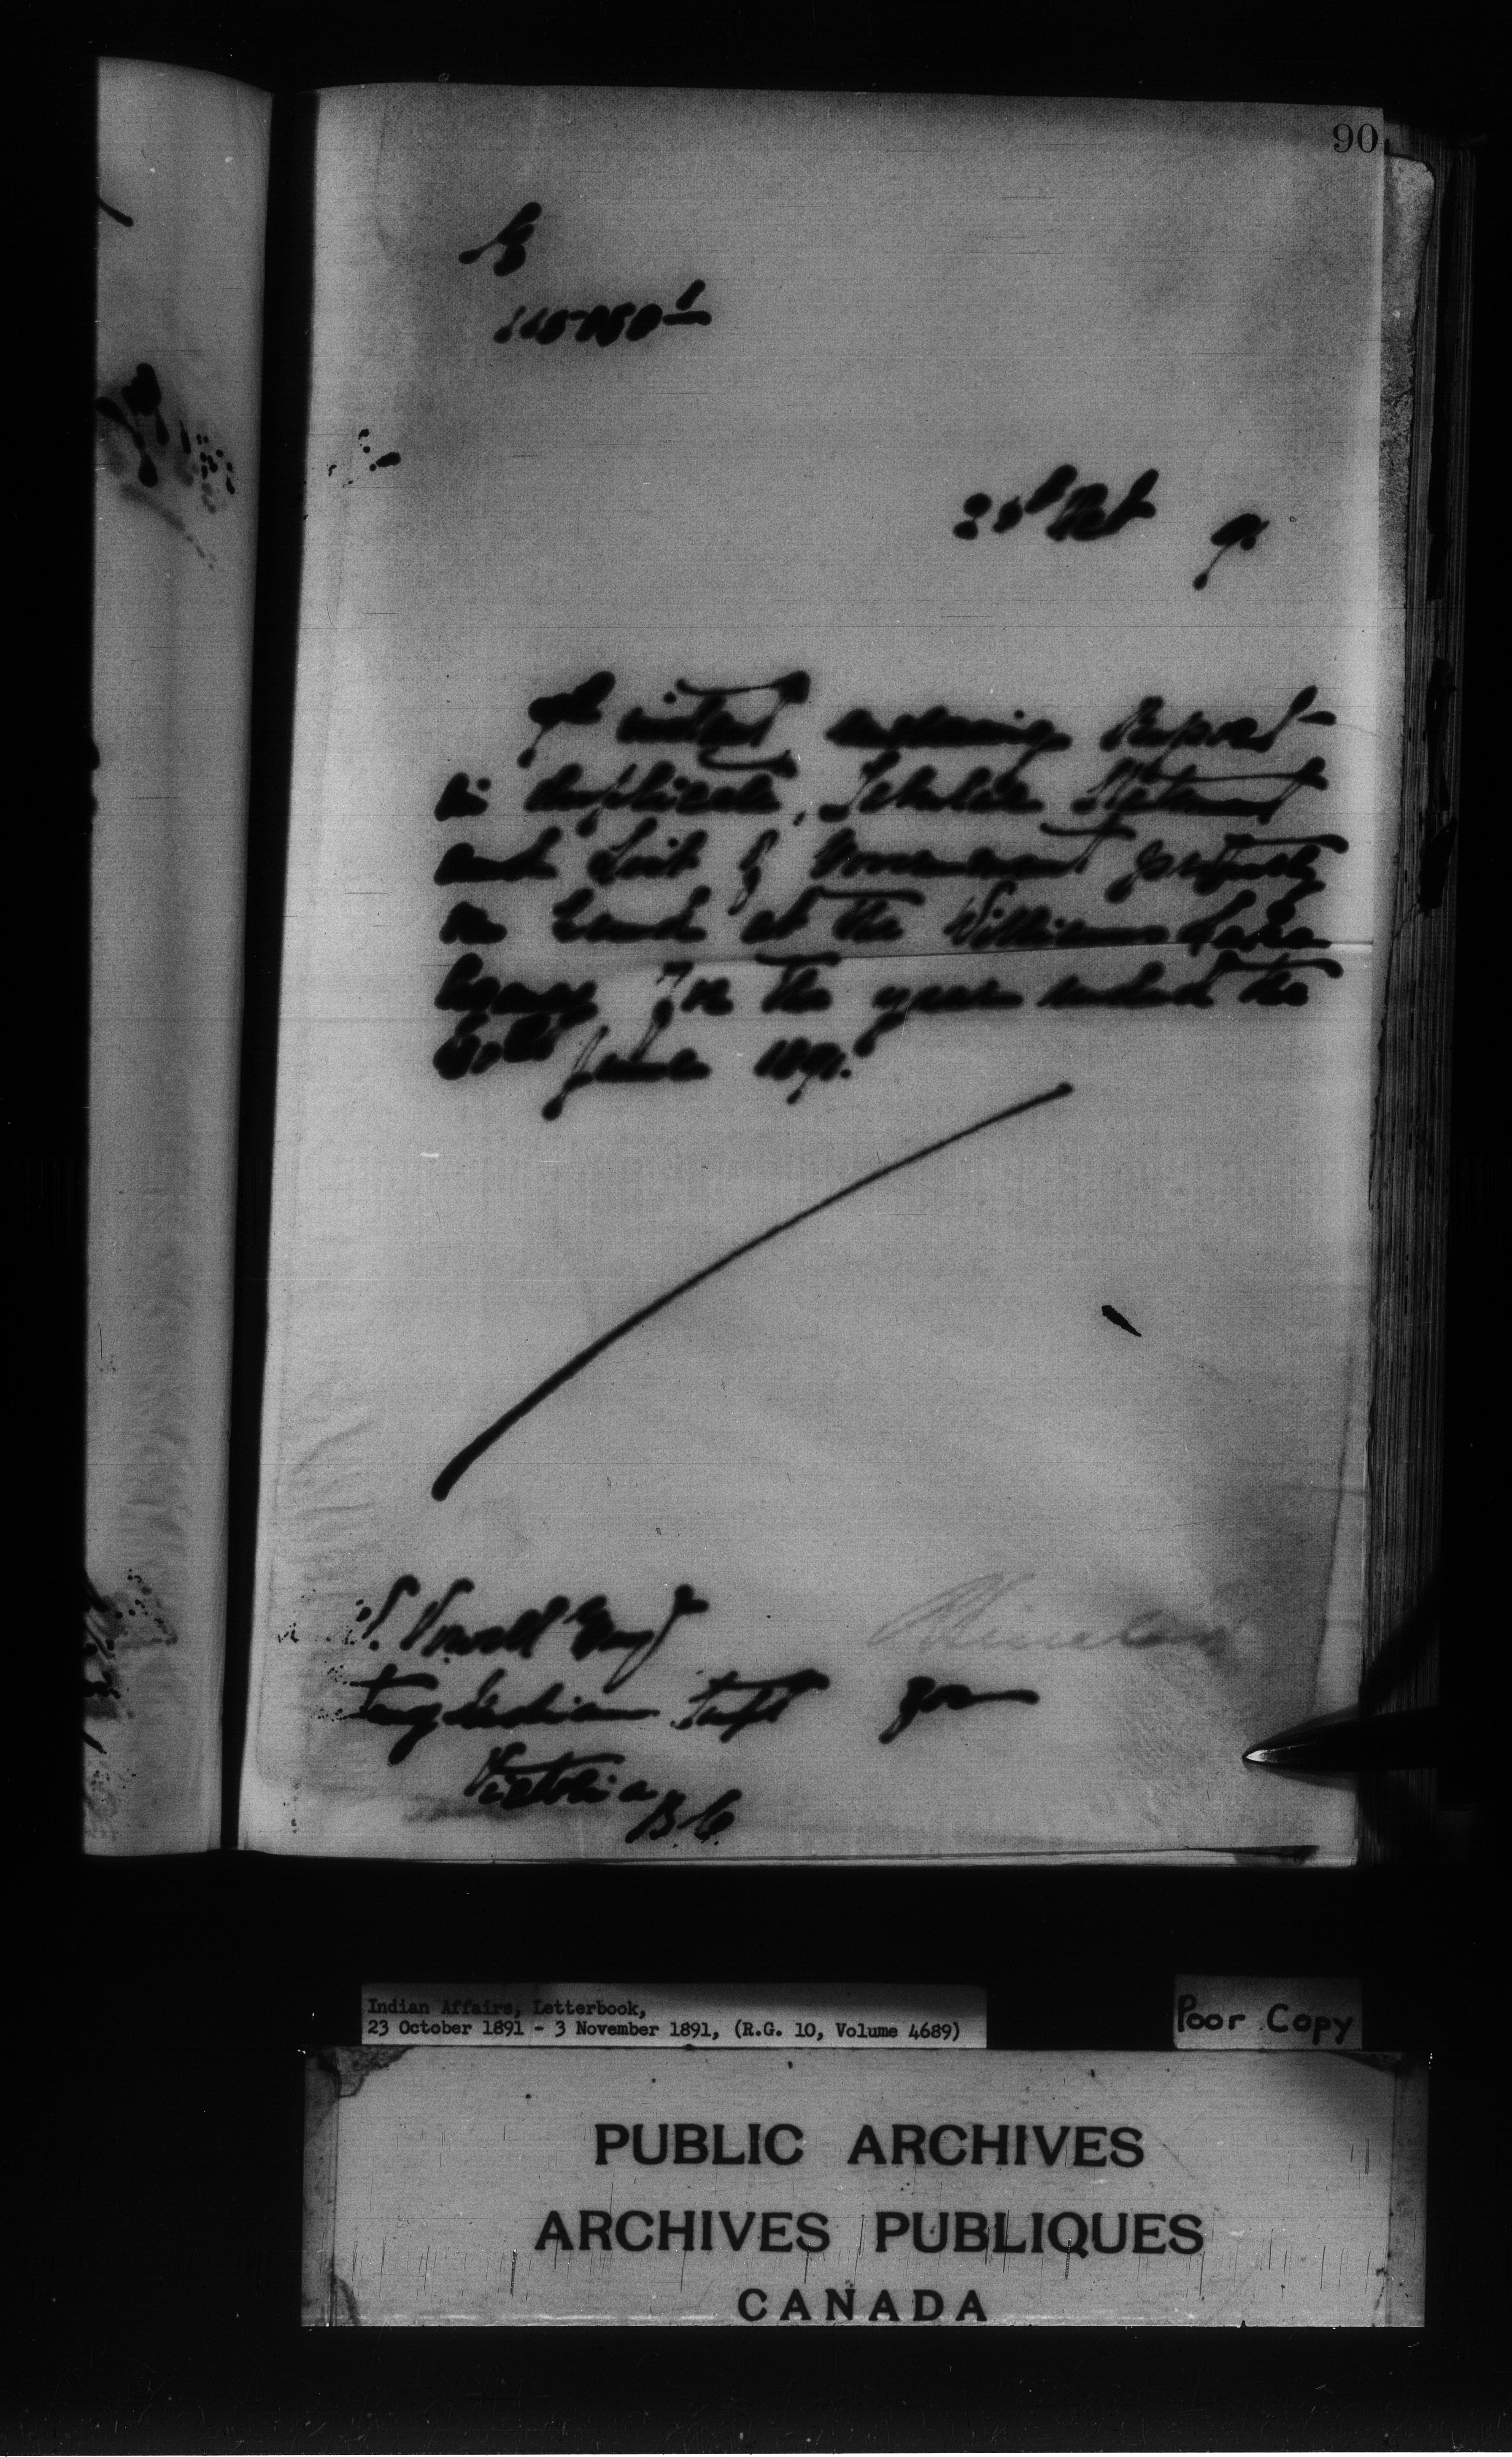 90
Oct 9
instant enclosing Report
in duplicate, Tabular Statement
and List of Government property
on hand at the Williams Lake
Agency for the year ended the
30th June 1891.
Vowell Esq
Indian Supt for
Victoria
B C
Indian Affairs, Letterbook,
23 October 1891 - 3 November 1891, (R.G. 10, Volume 4689)
Poor Copy
PUBLIC ARCHIVES
ARCHIVES PUBLIQUES
CANADA